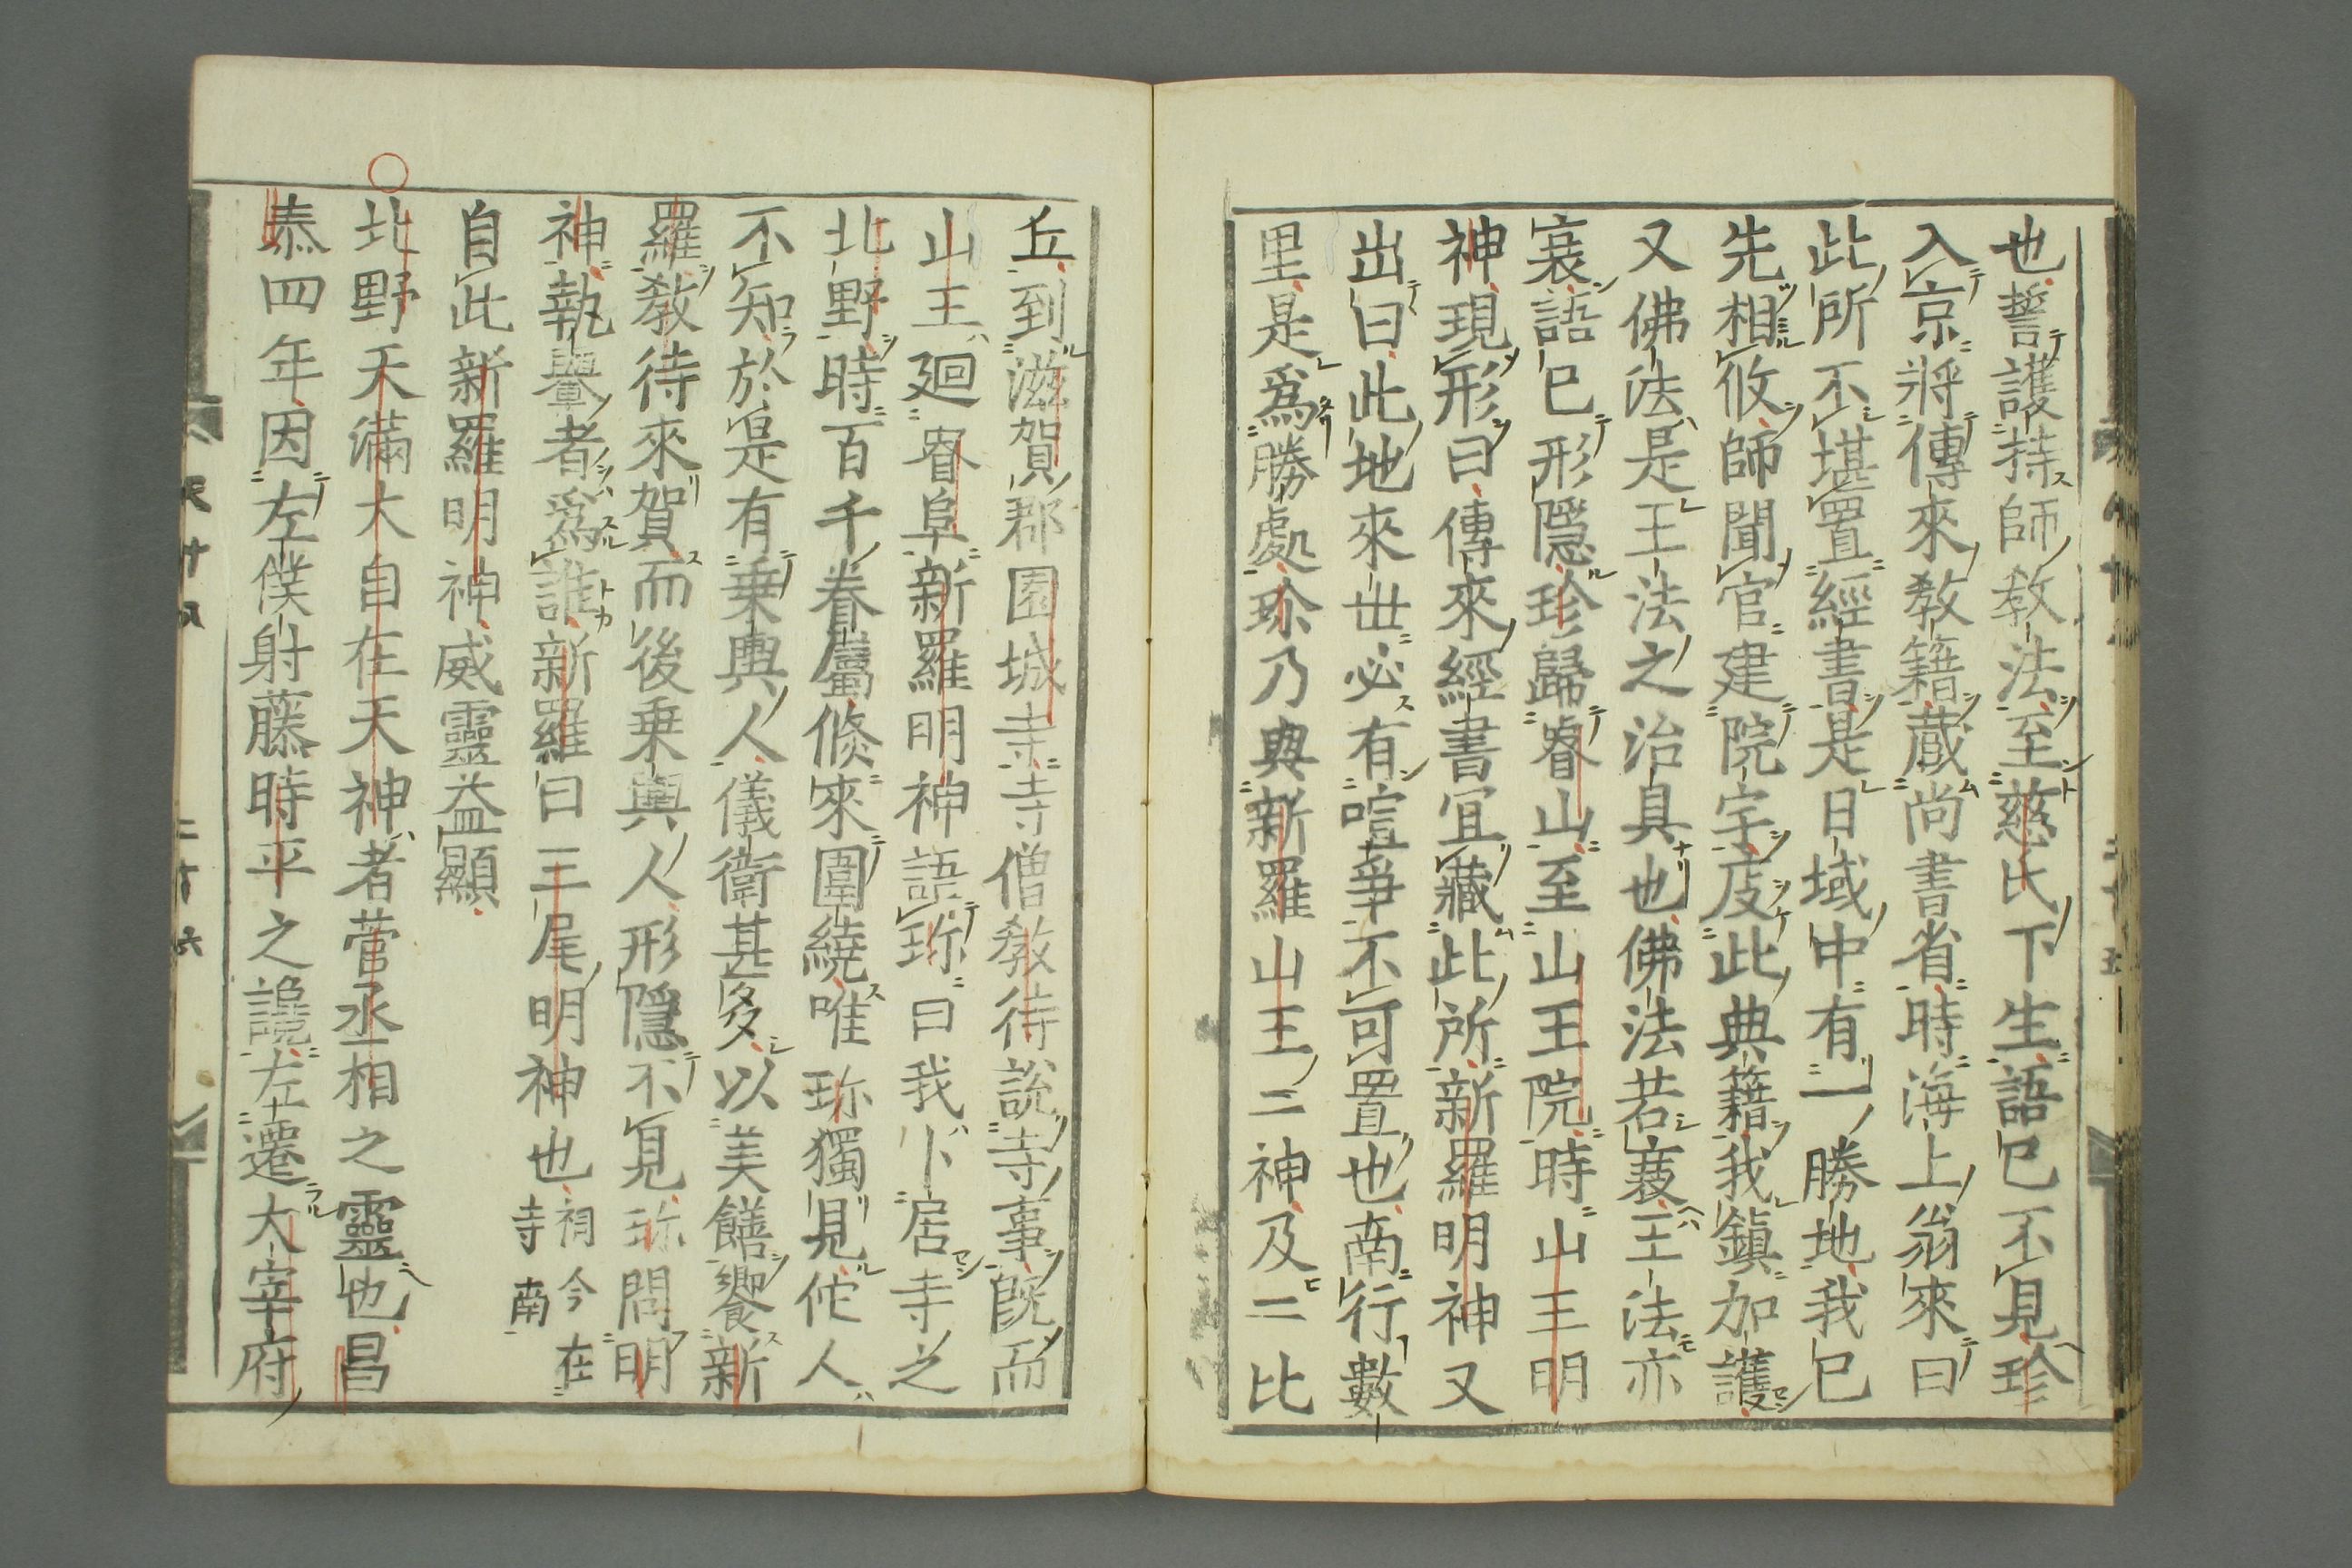 也誓護持師教法至慈氏下生語已不見珍
入京將傳來教籍藏尚書省時海上翁來曰
此所不堪置經書是日域中有一勝地我已
先相攸師聞官建院宇庋此典籍我鎭加護
又佛法是王法之治具也佛法若衰王法亦
衰語已形隱珍歸睿山至山王院時山王明
神現形曰傳來經書宜藏此所新羅明神又
出曰此地來世必有喧爭不可置也南行數
里是爲勝處珍乃與新羅山王二神及二比
丘到滋賀郡園城寺寺僧教待說寺事旣而
山王廻睿阜新羅明神語珍曰我卜居寺之
北野時百千眷屬倐來圍繞唯珍獨見佗人
不知於是有乗輿人儀衞甚多以美饍饗新
羅教待來賀而後乗輿人形隱不見珍問明
神執轝者爲誰新羅曰三尾明神也祠今在
寺南
自此新羅明神威靈益顯
北野天滿大自在天神者菅丞相之靈也昌
泰四年因左僕射藤時平之讒左遷大宰府
二十六